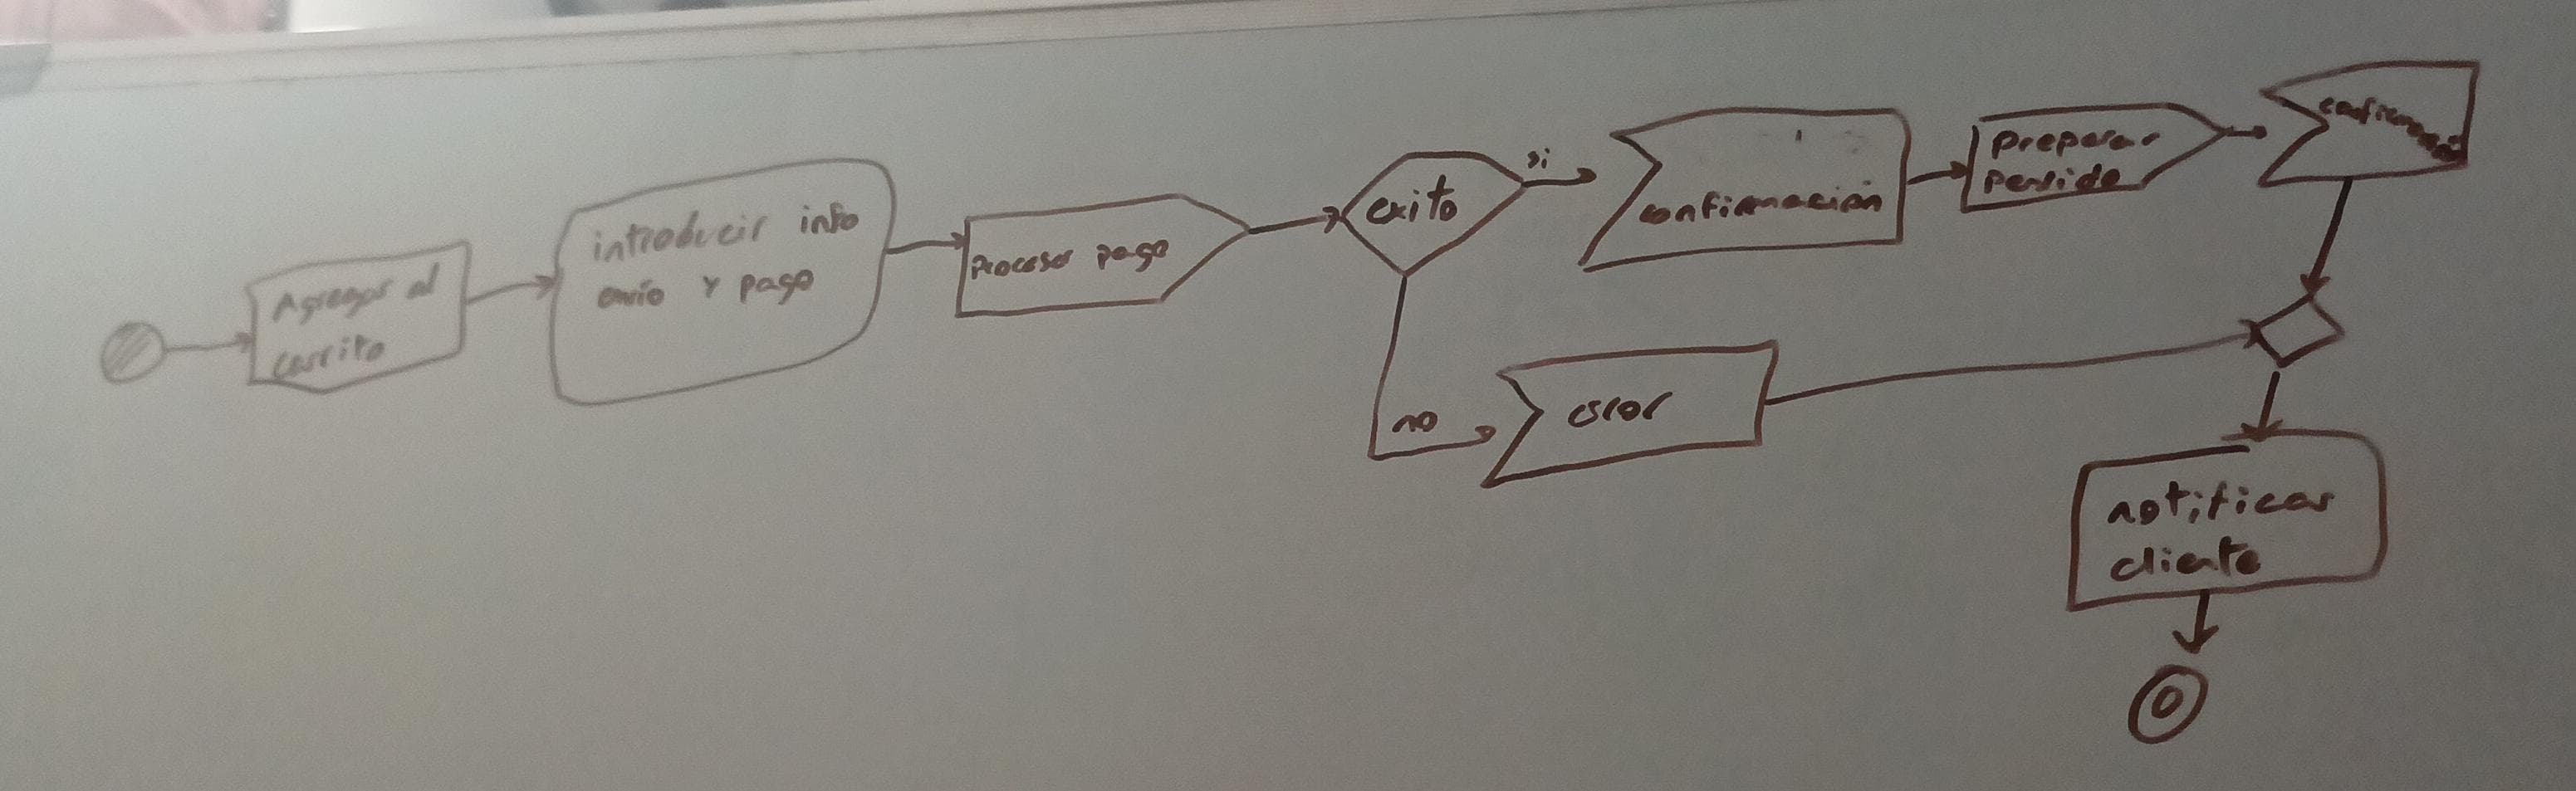 Agregar al
carrito
introducir info
envío y pago
Procesar pago
exito
si
confirmación
Preparar
Pedido
no
error
notificar
cliente